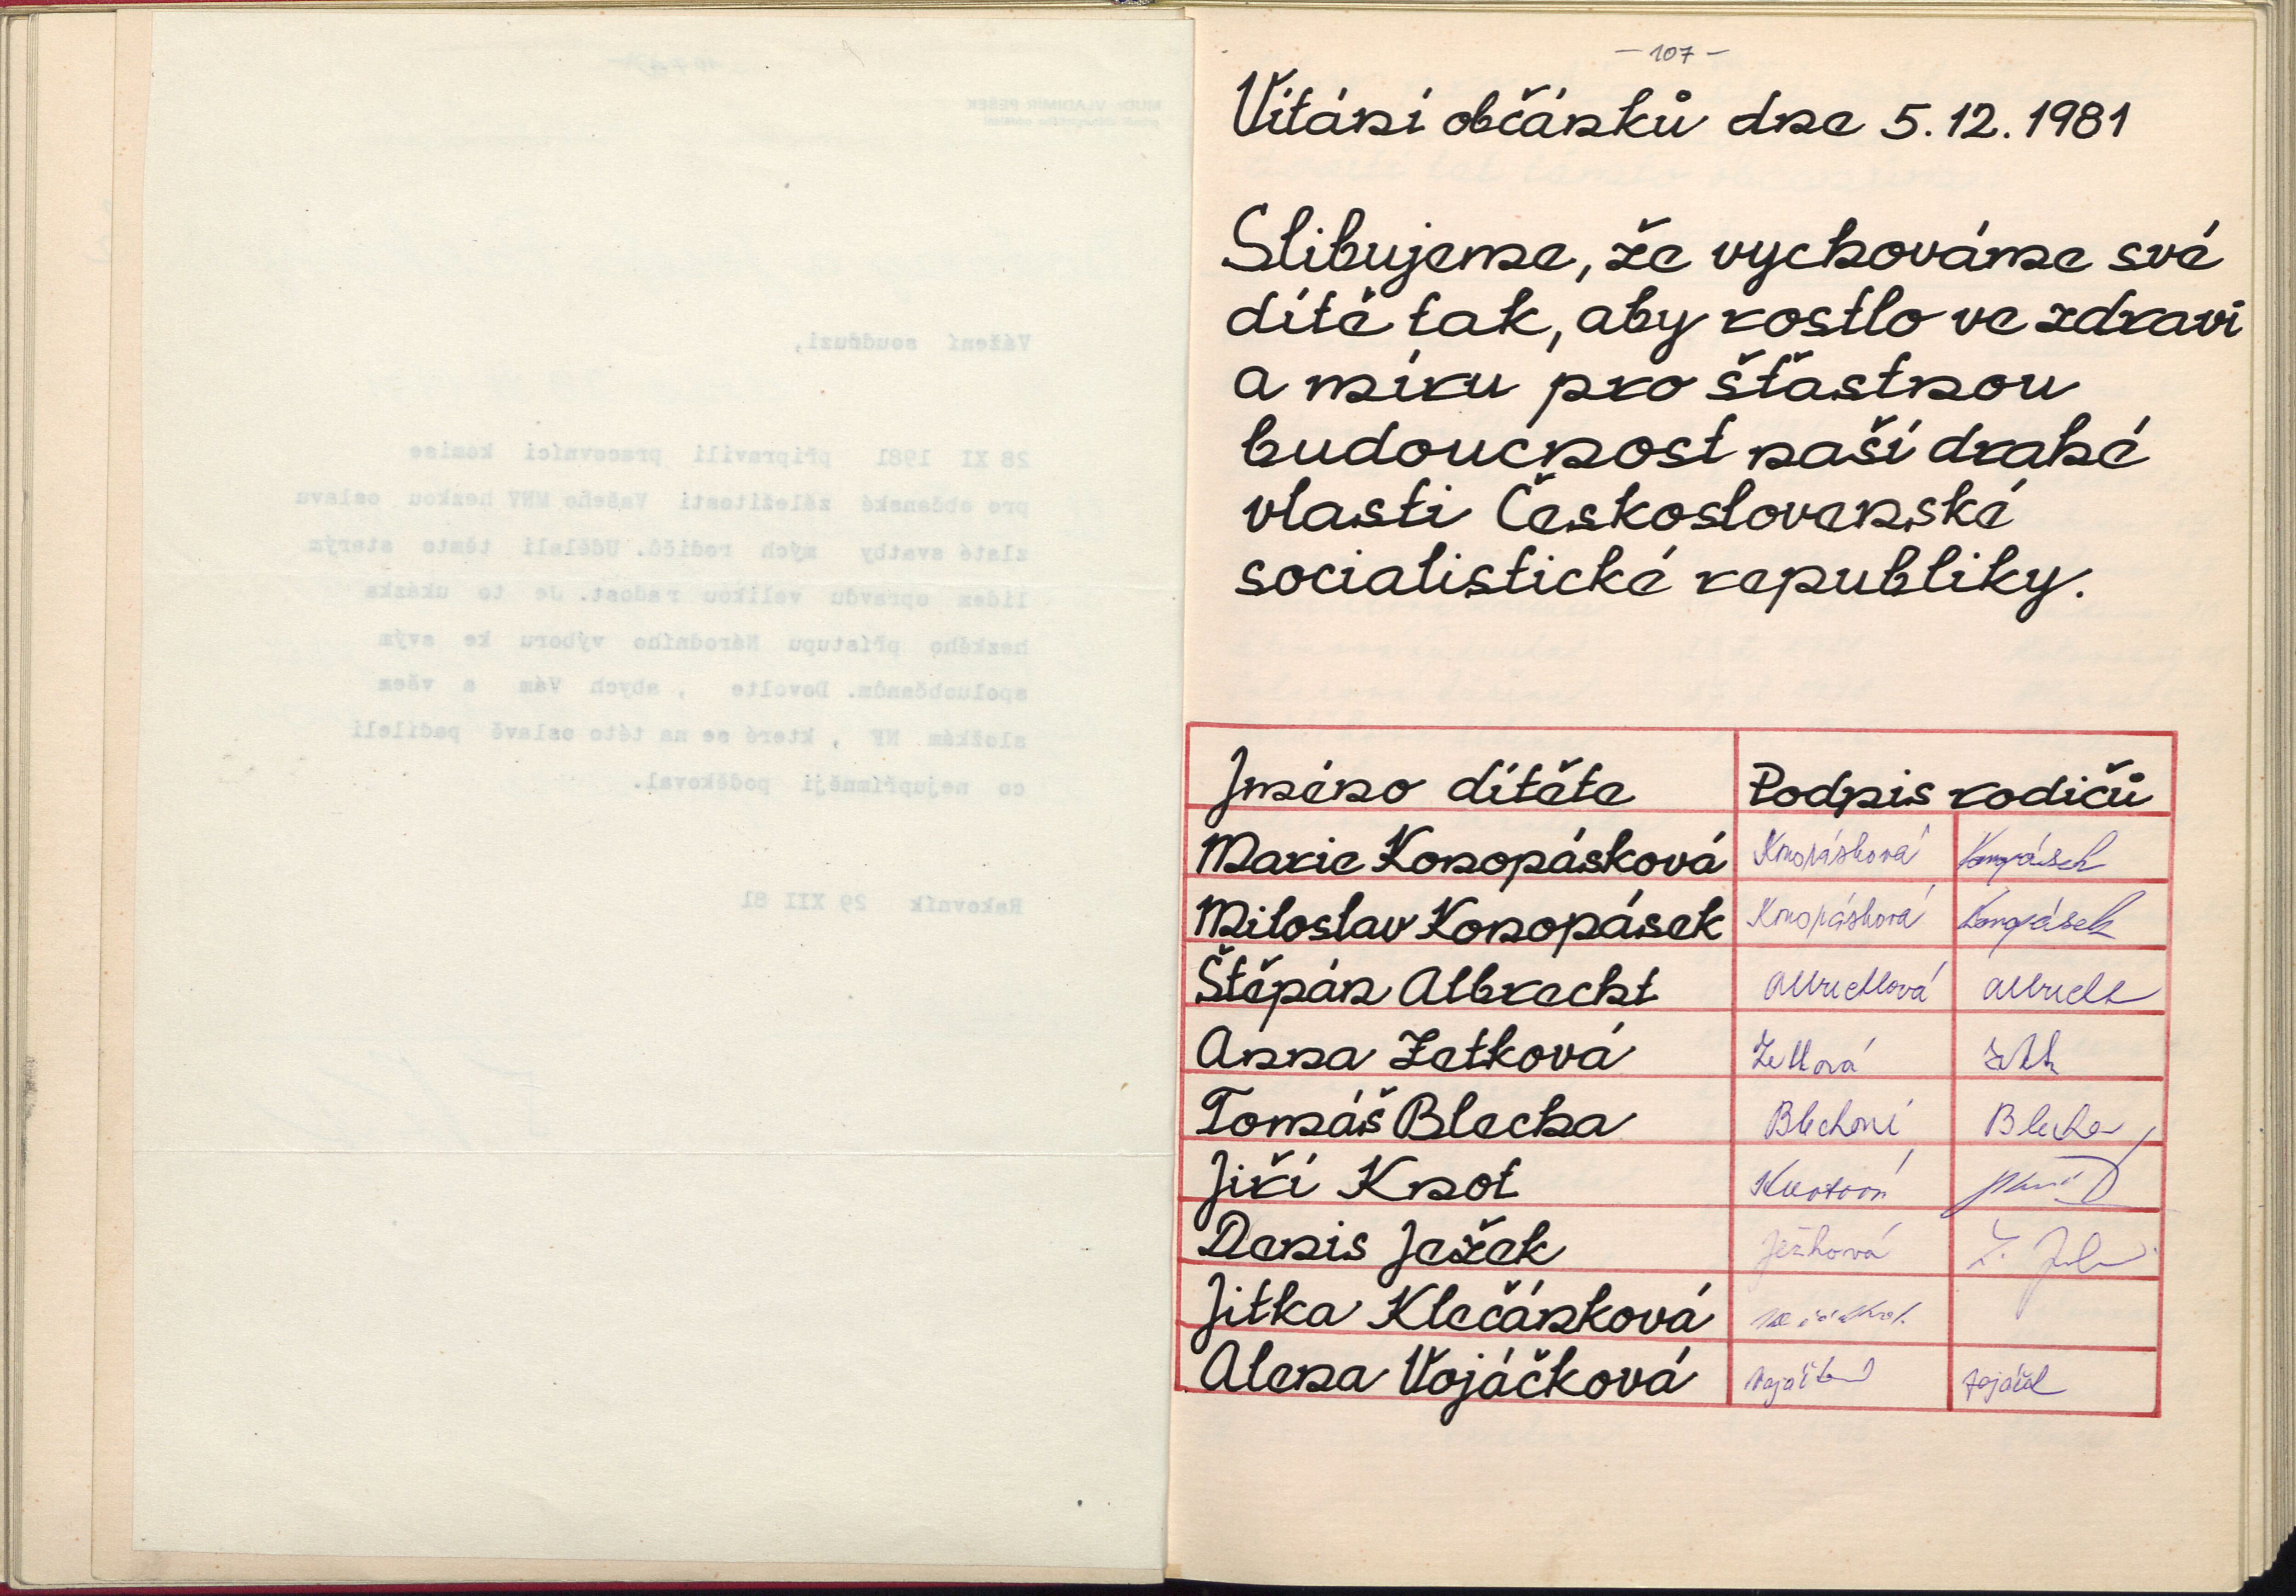 MUDr. VLADIMÍR PEŠEK
Vážení soudruzi,
28 XI 1981 připravili pracovníci komise
pro občanské záležitosti Vašeho MNV hezkou oslavu
zlaté svatby mých rodičů. Udělali těmto starým
lidem opravdu velikou radost. Je to ukázka
hezkého přístupu Národního výboru ke svým
spoluobčanům. Dovolte , abych Vám a všem
složkám NF , které se na této oslavě podíleli
co nejupřímněji poděkoval.
Rakovník 29 XII 81
- 107 -
Vítání občánků dne 5. 12. 1981
Slibujeme, že vychováme své
dítě tak, aby rostlo ve zdraví
a míru pro šťastnou
budoucnost naší drahé
vlasti Československé
socialistické republiky.
Jméno dítěte Podpis rodičů
Marie Konopásková Konopásková Konopásek
Miloslav Konopásek Konopásková Konopásek
Štěpán Albrecht Albrechtová Albrecht
Anna Zetková Zetková Zetk
Tomáš Blecha Blechoví Blecha
Jiří Knot Knotová
Denis Ježek Ježková
Jitka Klečánková
Alena Vojáčková Vojáčková Vojáček